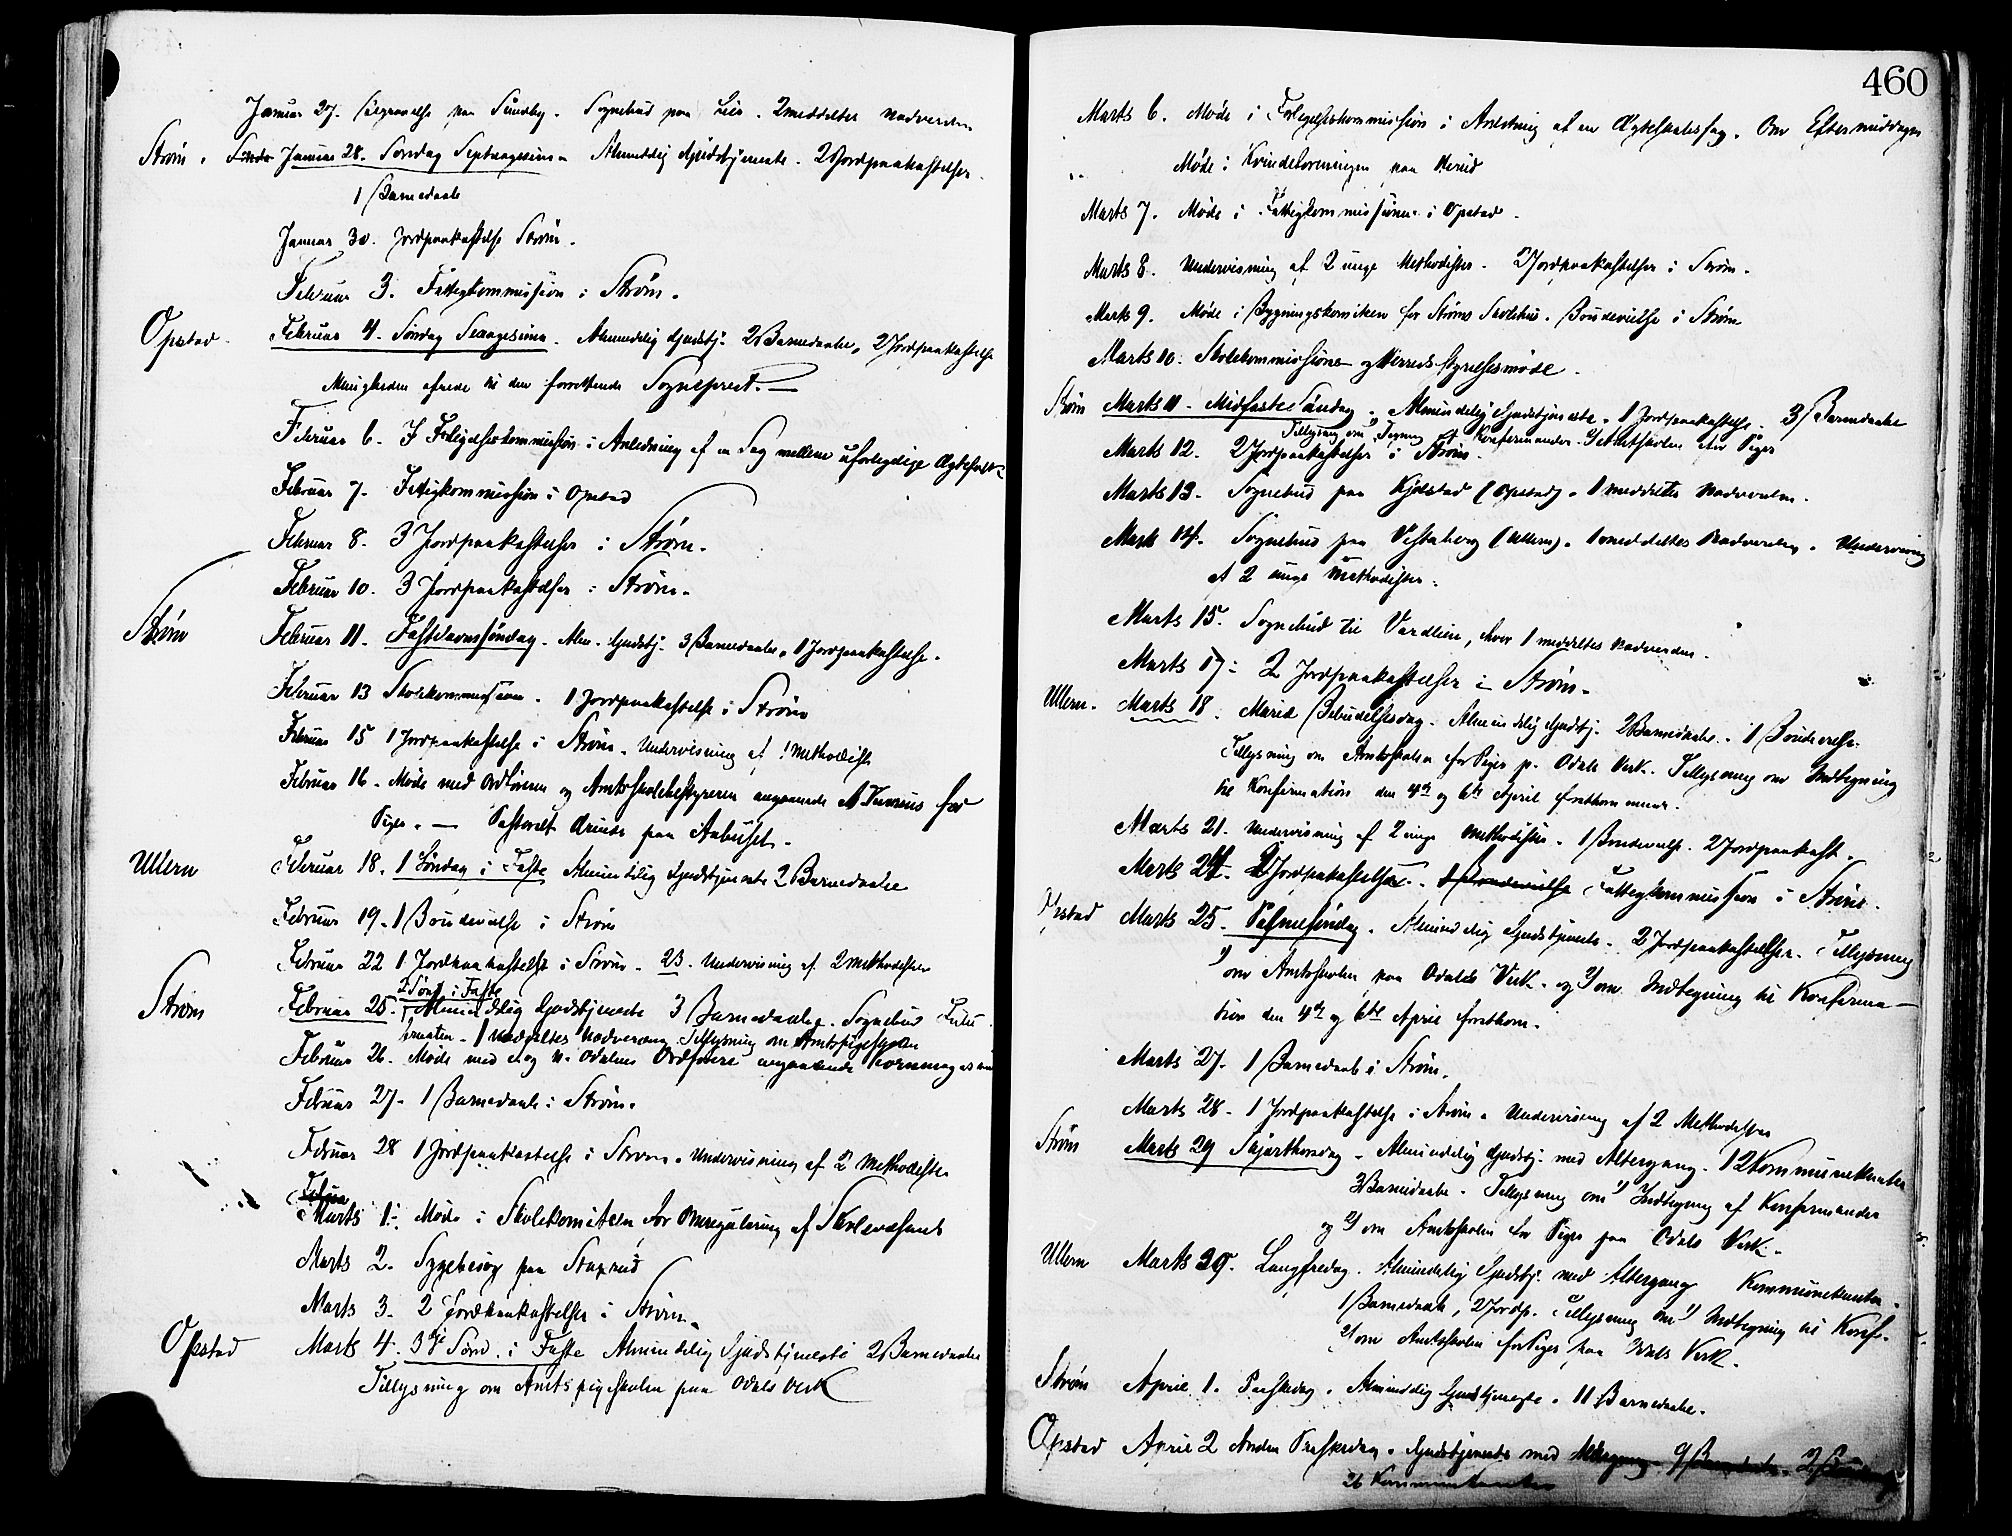 Januar 27. Sognebud paa Lier. 2 meddeltes Nadverden
Strøm. Januar 28. Søndag Septuagesima. Almindelig Gudstjeneste. 2 Jordpaakastelser.
1 Barnedaab
Januar 30. Jordpaakastelse Strøm.
Februar 3. Fattigkommission i Strøm.
Opstad. Februar 4. Søndag Sexagesima. Almindelig Gudstj. 2 Barnedaabe, 2 Jordpaakastelse
Menigheden til den Sogneprest.
Februar 6. I Forligelseskommission i Anledning af en Sag mellem uforligelige Ægtefolk
Februar 7. Fattigkommission i Opstad
Februar 8. 3 Jordpaakastelser i Strøm.
Februar 10. 3 Jordpaakastelser i Strøm.
Strøm Februar 11. Fastelavnssøndag. Alm. Gudstj. 3 Barnedaabe. 1 Jordpaakastelse.
Februar 13 Skolekommission. 1 Jordpaakastelse i Strøm
Februar 15 1 Jordpaakastelse i Strøm. Undervisning af 1 Methodist
Februar 16. Møde med Ordføreren og Amtsskolebestyreren angaaende for
Piger. — paa
Ullern Februar 18. 1 Søndag i Faste Almindelig Gudstjeneste 2 Barnedaabe
Februar 19. 1 Brudevielse i Strøm
Februar 22 1 Jordpaakastelse i Strøm. 23. Undervisning af 2 Methodister
2 Sønd. i Faste
Strøm Februar 25. Almindelig Gudstjeneste 3 Barnedaabe. Sognebud
1 meddeltes Nadveren. Tillysning om Amtspigeskolen
Februar 26. Møde med S. og N. Odalens Ordførere angaaende Kornmagasin
Februar 27. 1 Barnedaab i Strøm.
Februar 28 1 Jordpaakastelse i Strøm. Undervisning af 2 Methodister
Februar
Marts 1. Møde i Skolekomiteen for Omregulering af Skolevæsenet
Marts 2. Sygebesøg paa
Marts 3. 2 Jordpaakastelser i Strøm.
Opstad Marts 4. 3die Sønd. i Faste Almindelig Gudstjeneste 2 Barnedaabe
Tillysning om Amtspigeskolen paa Odals Verk
460
Marts 6. Møde i Forligelseskommission i Anledning af en Ægteskabssag. Om Eftermiddagen
Møde i Kvindeforeningen paa
Marts 7. Møde i Fattigkommissionen i Opstad.
Marts 8. Undervisning af 2 unge Methodister. 2 Jordpaakastelser i Strøm.
Marts 9. Møde i Bygningskomiteen for Strøms Skolehus. Brudevielse i Strøm
Marts 10. Skolekommissions og Herredsstyrelsesmøde.
Strøm Marts 11. Midfaste Søndag. Almindelig Gudstjeneste. 1 Jordpaakastelse. 3 Barnedaabe
Tillysning om Konfirmander. 2) Amtskolen for Piger
Marts 12. 2 Jordpaakastelser i Strøm.
Marts 13. Sognebud paa Kjølstad (Opstad). 1 meddeltes Nadverden.
Marts 14. Sognebud paa Vestaberg (Ullern). 1 meddeltes Nadverden. Undervisning
af 2 unge Methodister.
Marts 15. Sognebud til Vardlien, hvor 1 meddeltes Nadverden.
Marts 17. 2 Jordpaakastelser i Strøm.
Ullern. Marts 18. Mariæ Bebudelsesdag. Almindelig Gudstj. 2 Barnedaabe. 1 Brudevielse.
Tillysning om Amtsskolen for Piger p. Odals Verk. Tillysning om Indtegning
til Konfirmation den 4de og 6te April førstkommende.
Marts 21. Undervisning af 2 unge Methodister. 1 Brudevielse. 2 Jordpaakast.
Marts 24. 2 Jordpaakastelser. 1 Brudevielse Fattigkommission i Strøm.
Opstad Marts 25. Palmesøndag. Almindelig Gudstjeneste. 2 Jordpaakastelser. Tillysning
1) om Amtsskolen paa Odals Verk. og 2) om Indtegning til Konfirma-
tion den 4de og 6te April førstkom.
Marts 27. 1 Barnedaab i Strøm.
Marts 28. 1 Jordpaakastelse i Strøm. Undervisning af 2 Methodister
Strøm Marts 29 Skjærthorsdag. Almindelig Gudstj. med Altergang. 12 Kommunikanter
3 Barnedaabe. Tillysning om 1) Indtegning af Konfirmander
og 2) om Amtsskolen for Piger paa Odals Verk.
Ullern Marts 30. Langfredag. Almindelig Gudstj. med Altergang Kommunikanter.
1 Barnedaab, 2 Jordp. Tillysning om 1) Indtegning til Konf.
2) om Amtsskolen for Piger paa Odals Verk.
Strøm April 1. Paaskedag. Almindelig Gudstjeneste. 11 Barnedaabe.
Opstad April 2 Anden Paaskedag. Gudstjeneste med Altergang. 9 Barnedaabe. 2
26 Kommunikanter